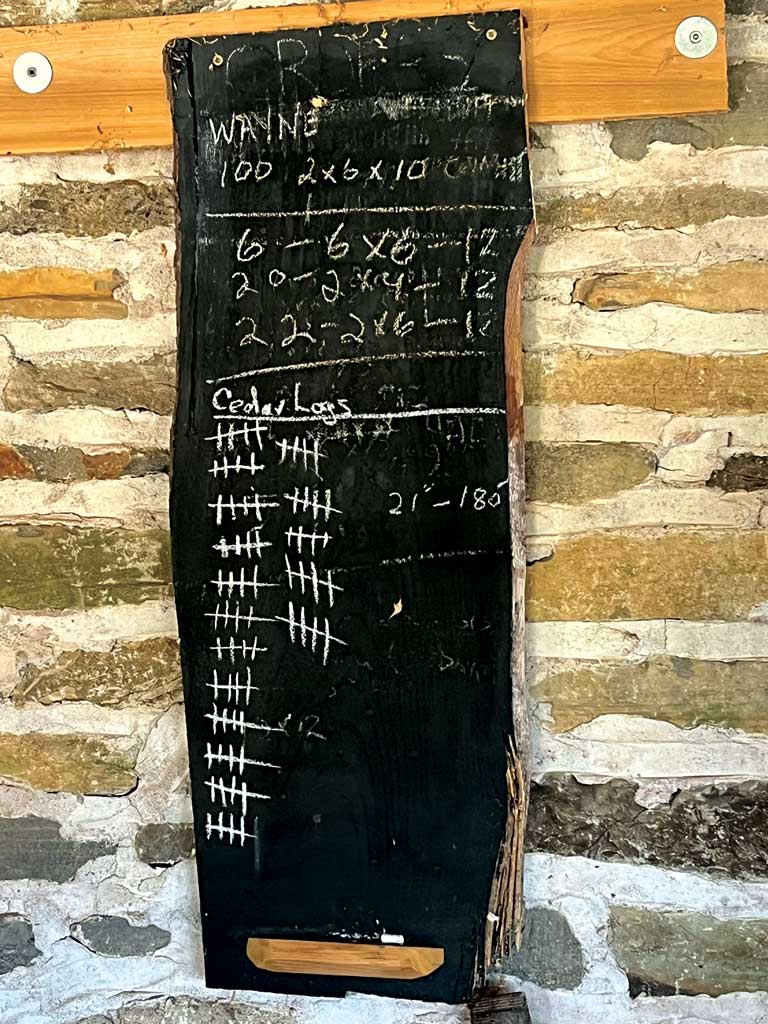 WAYNE
100 2x6x10
6 - 6x6 - 12
20 - 2x4 - 12
22 - 2x6 - 12
Cedar Logs
21" - 180"
x12